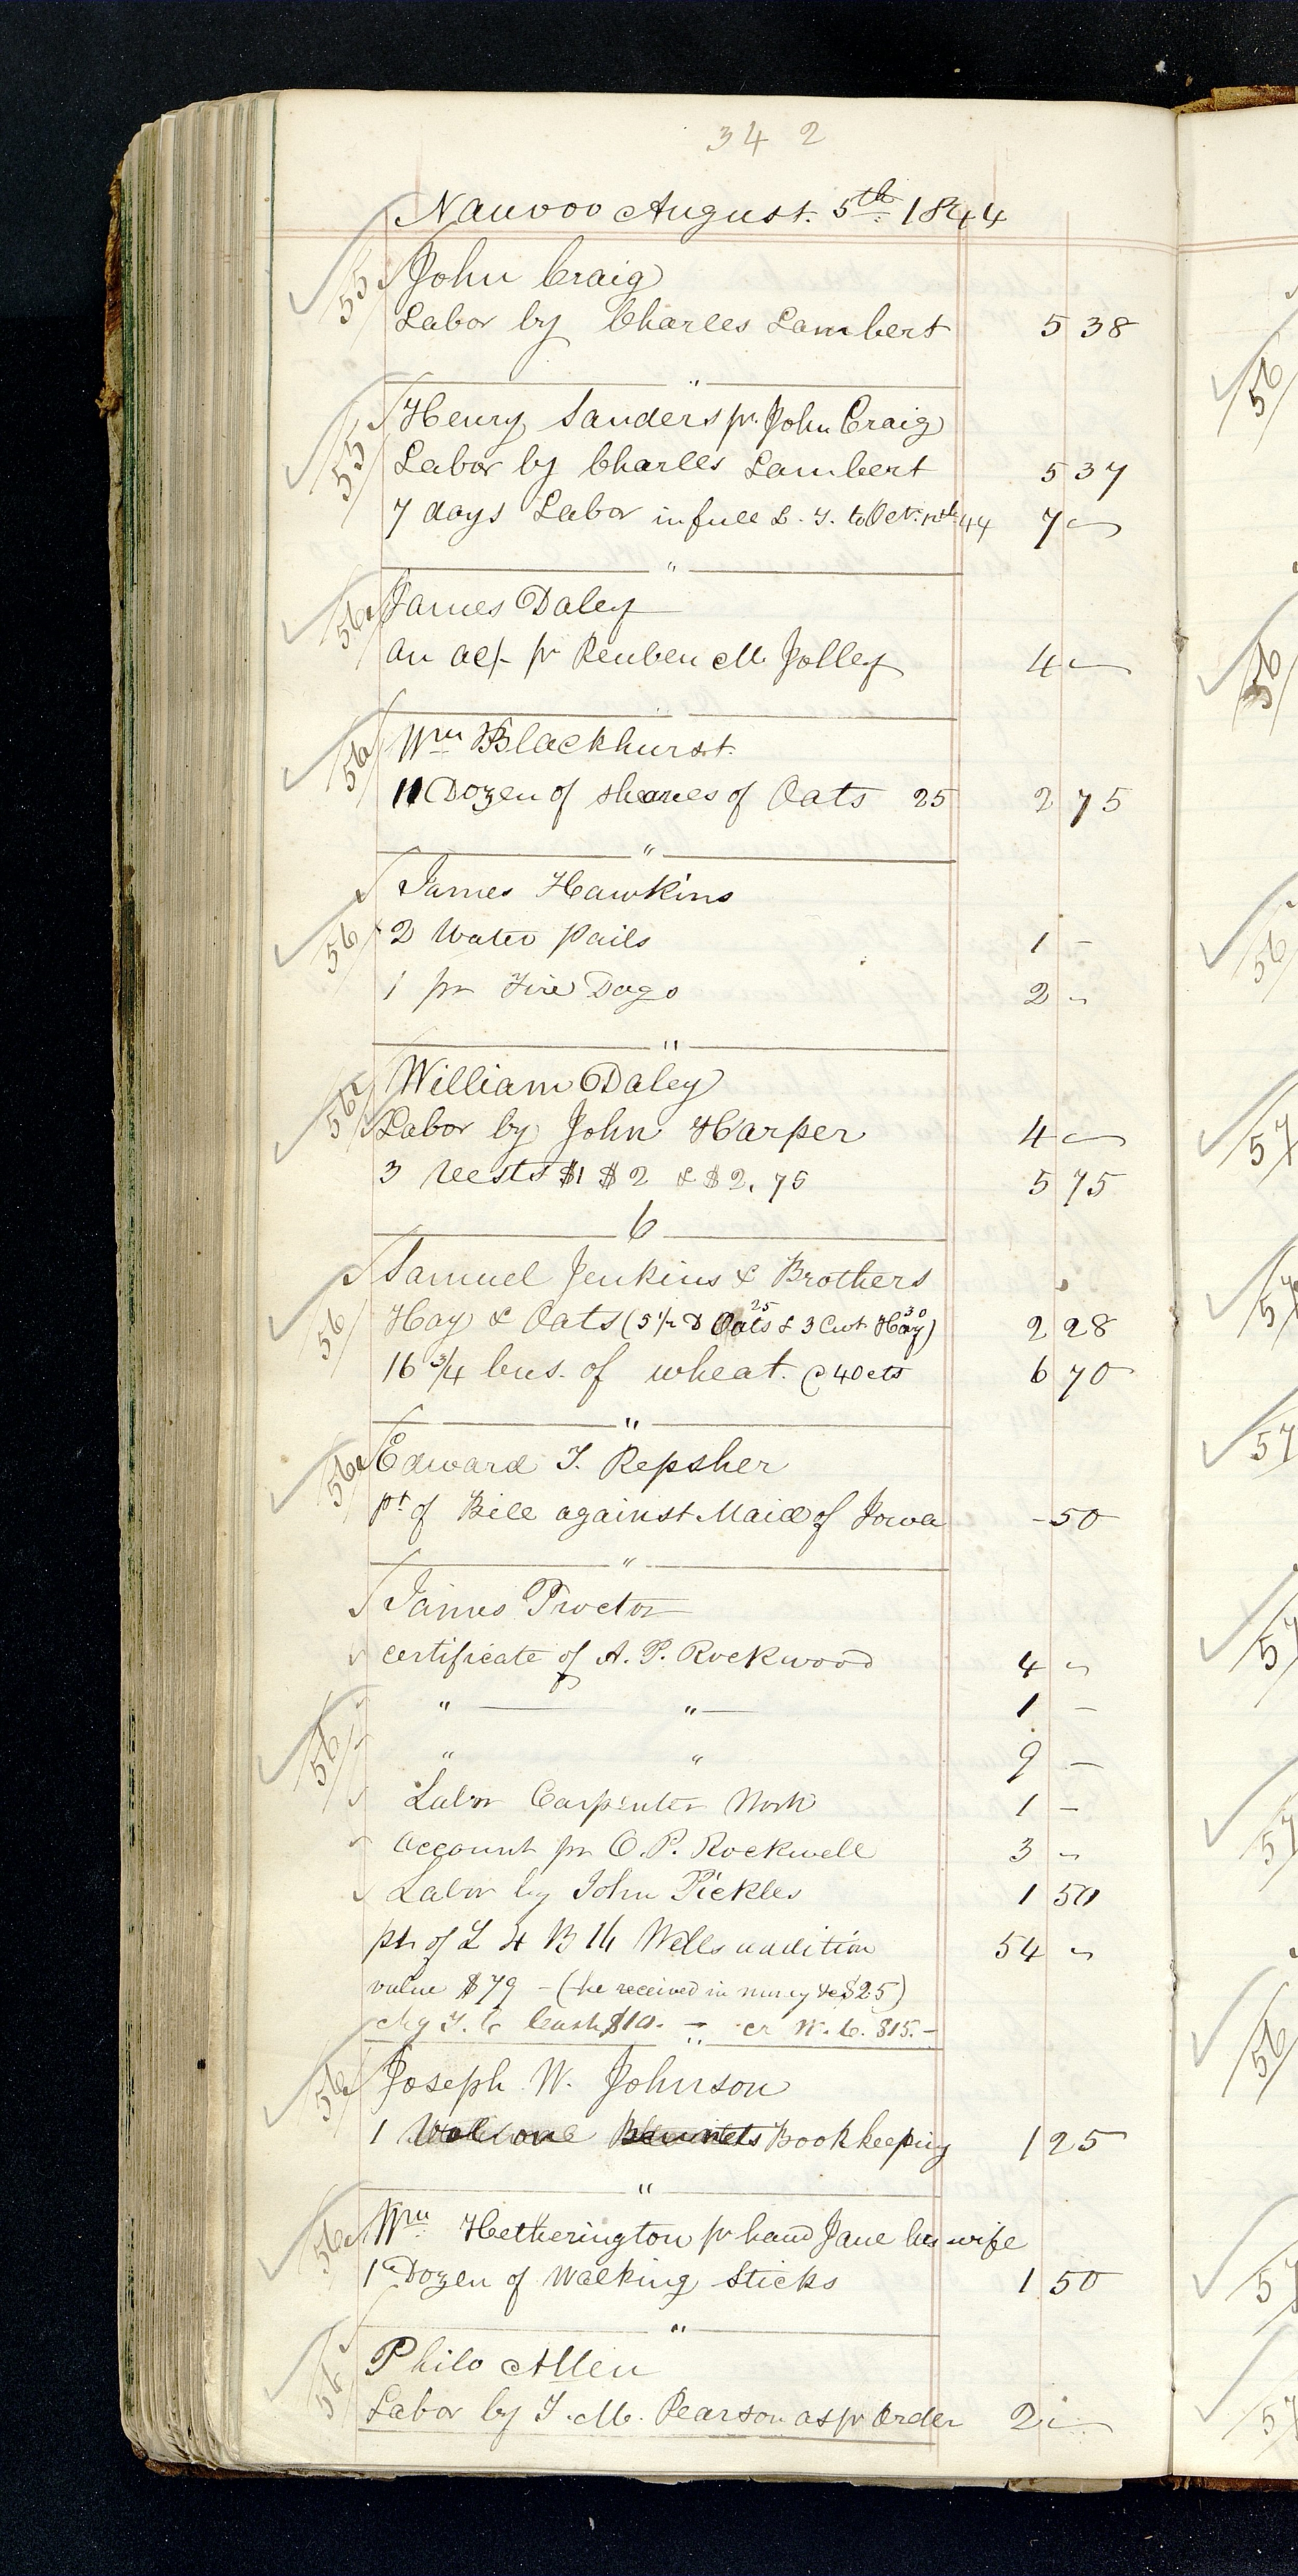 342
Nauvoo August. 5th. 1844
55 John Craig
Labor by Charles Lambert 5 38
"
55 Henry Sanders pr. John Craig
Labor by Charles Lambert 5 37
7 days Labor in full to Oct. 44 7 "
"
56 James Daley
an ac/- pr Reuben M. Jolley 4 "
56 Wm Blackhurst.
11 Dozen of sheaves of Oats 25 2 75
"
James Hawkins
56 2 Water pails 1 -
1 pr Fire Dogs 2 "
"
William Daley
56 Labor by John Harper 4 "
3 Vests $1 $2 & $2,75 5 75
6
Samuel Jenkins & Brothers
25 30
56 Hay & Oats (5 1/2 D Oats & 3 Cwt Hay) 2 28
16 3/4 bus. of wheat. @ 40 cts 6 70
"
56 Edward T. Repsher
pt of Bill against Maid of Iowa - 50
"
James Proctor
certificate of A. P. Rockwood 4 "
" " 1 -
56 " " 9 -
Labor Carpenter Work 1 -
account pr O. P. Rockwell 3 "
Labor by John Pickles 1 50
pt of L 4 B 16 Wells addition 54 "
value $79 - (he received in money &c $25)
chg T. C Cash $10. - " cr W. C. $15. -
56 Joseph W. Johnson
1 Bennets Bookkeeping 1 25
"
56 Wm. Hetherington pr hand Jane his wife
1 Dozen of Walking Sticks 1 50
"
56 Philo Allen
Labor by T. M. Pearson as pr Order 2 "
56
56
56
57
57
57
57
57
56
57
57